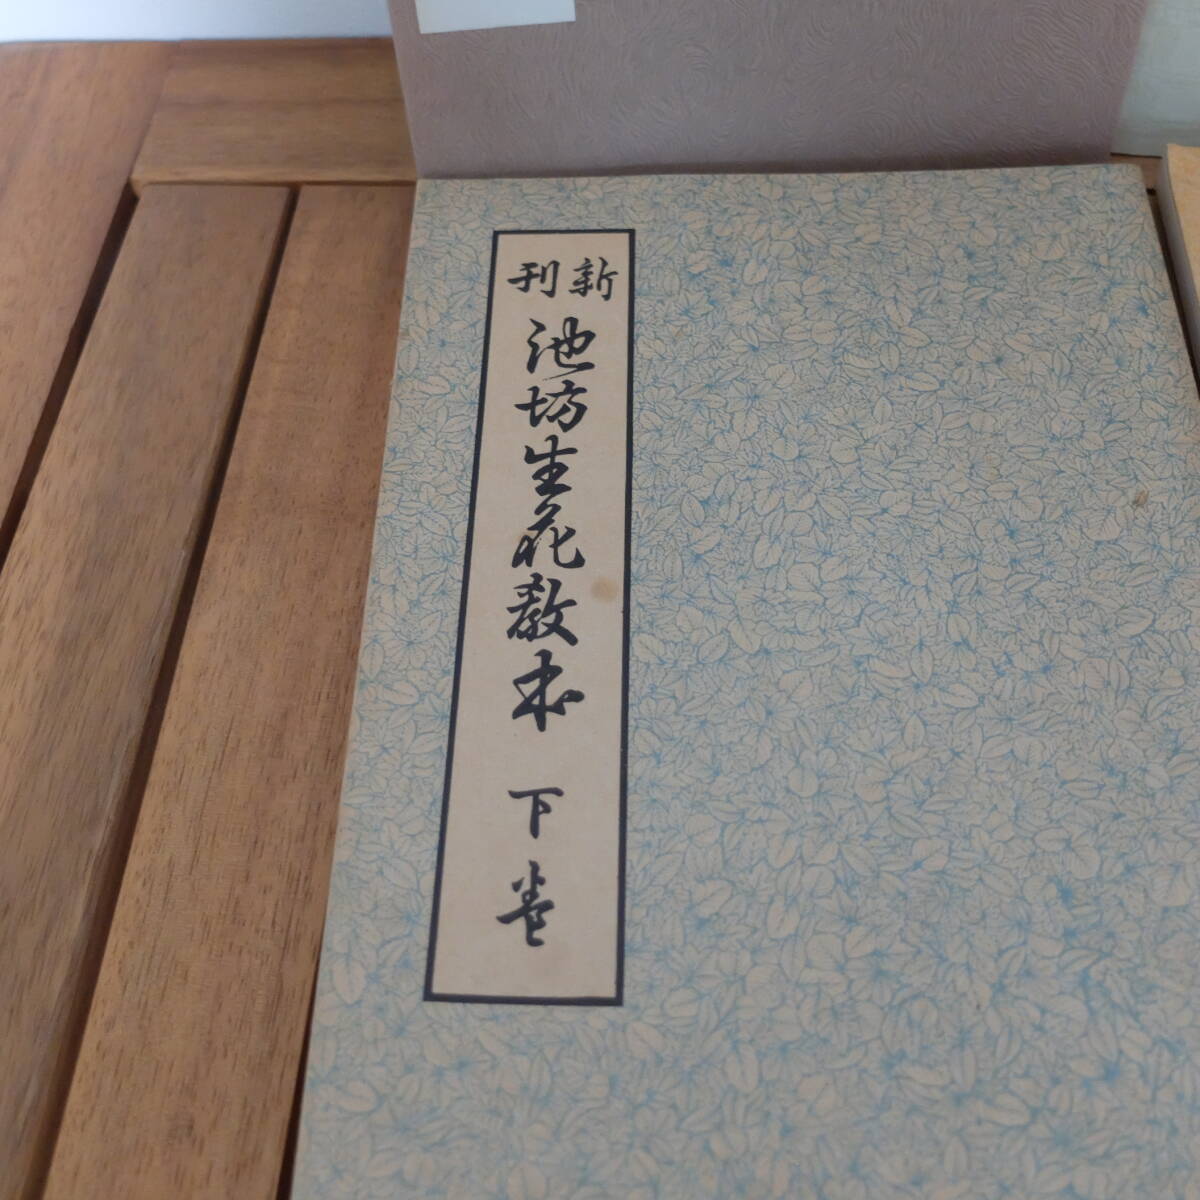 新刊
池坊生花教本 下巻